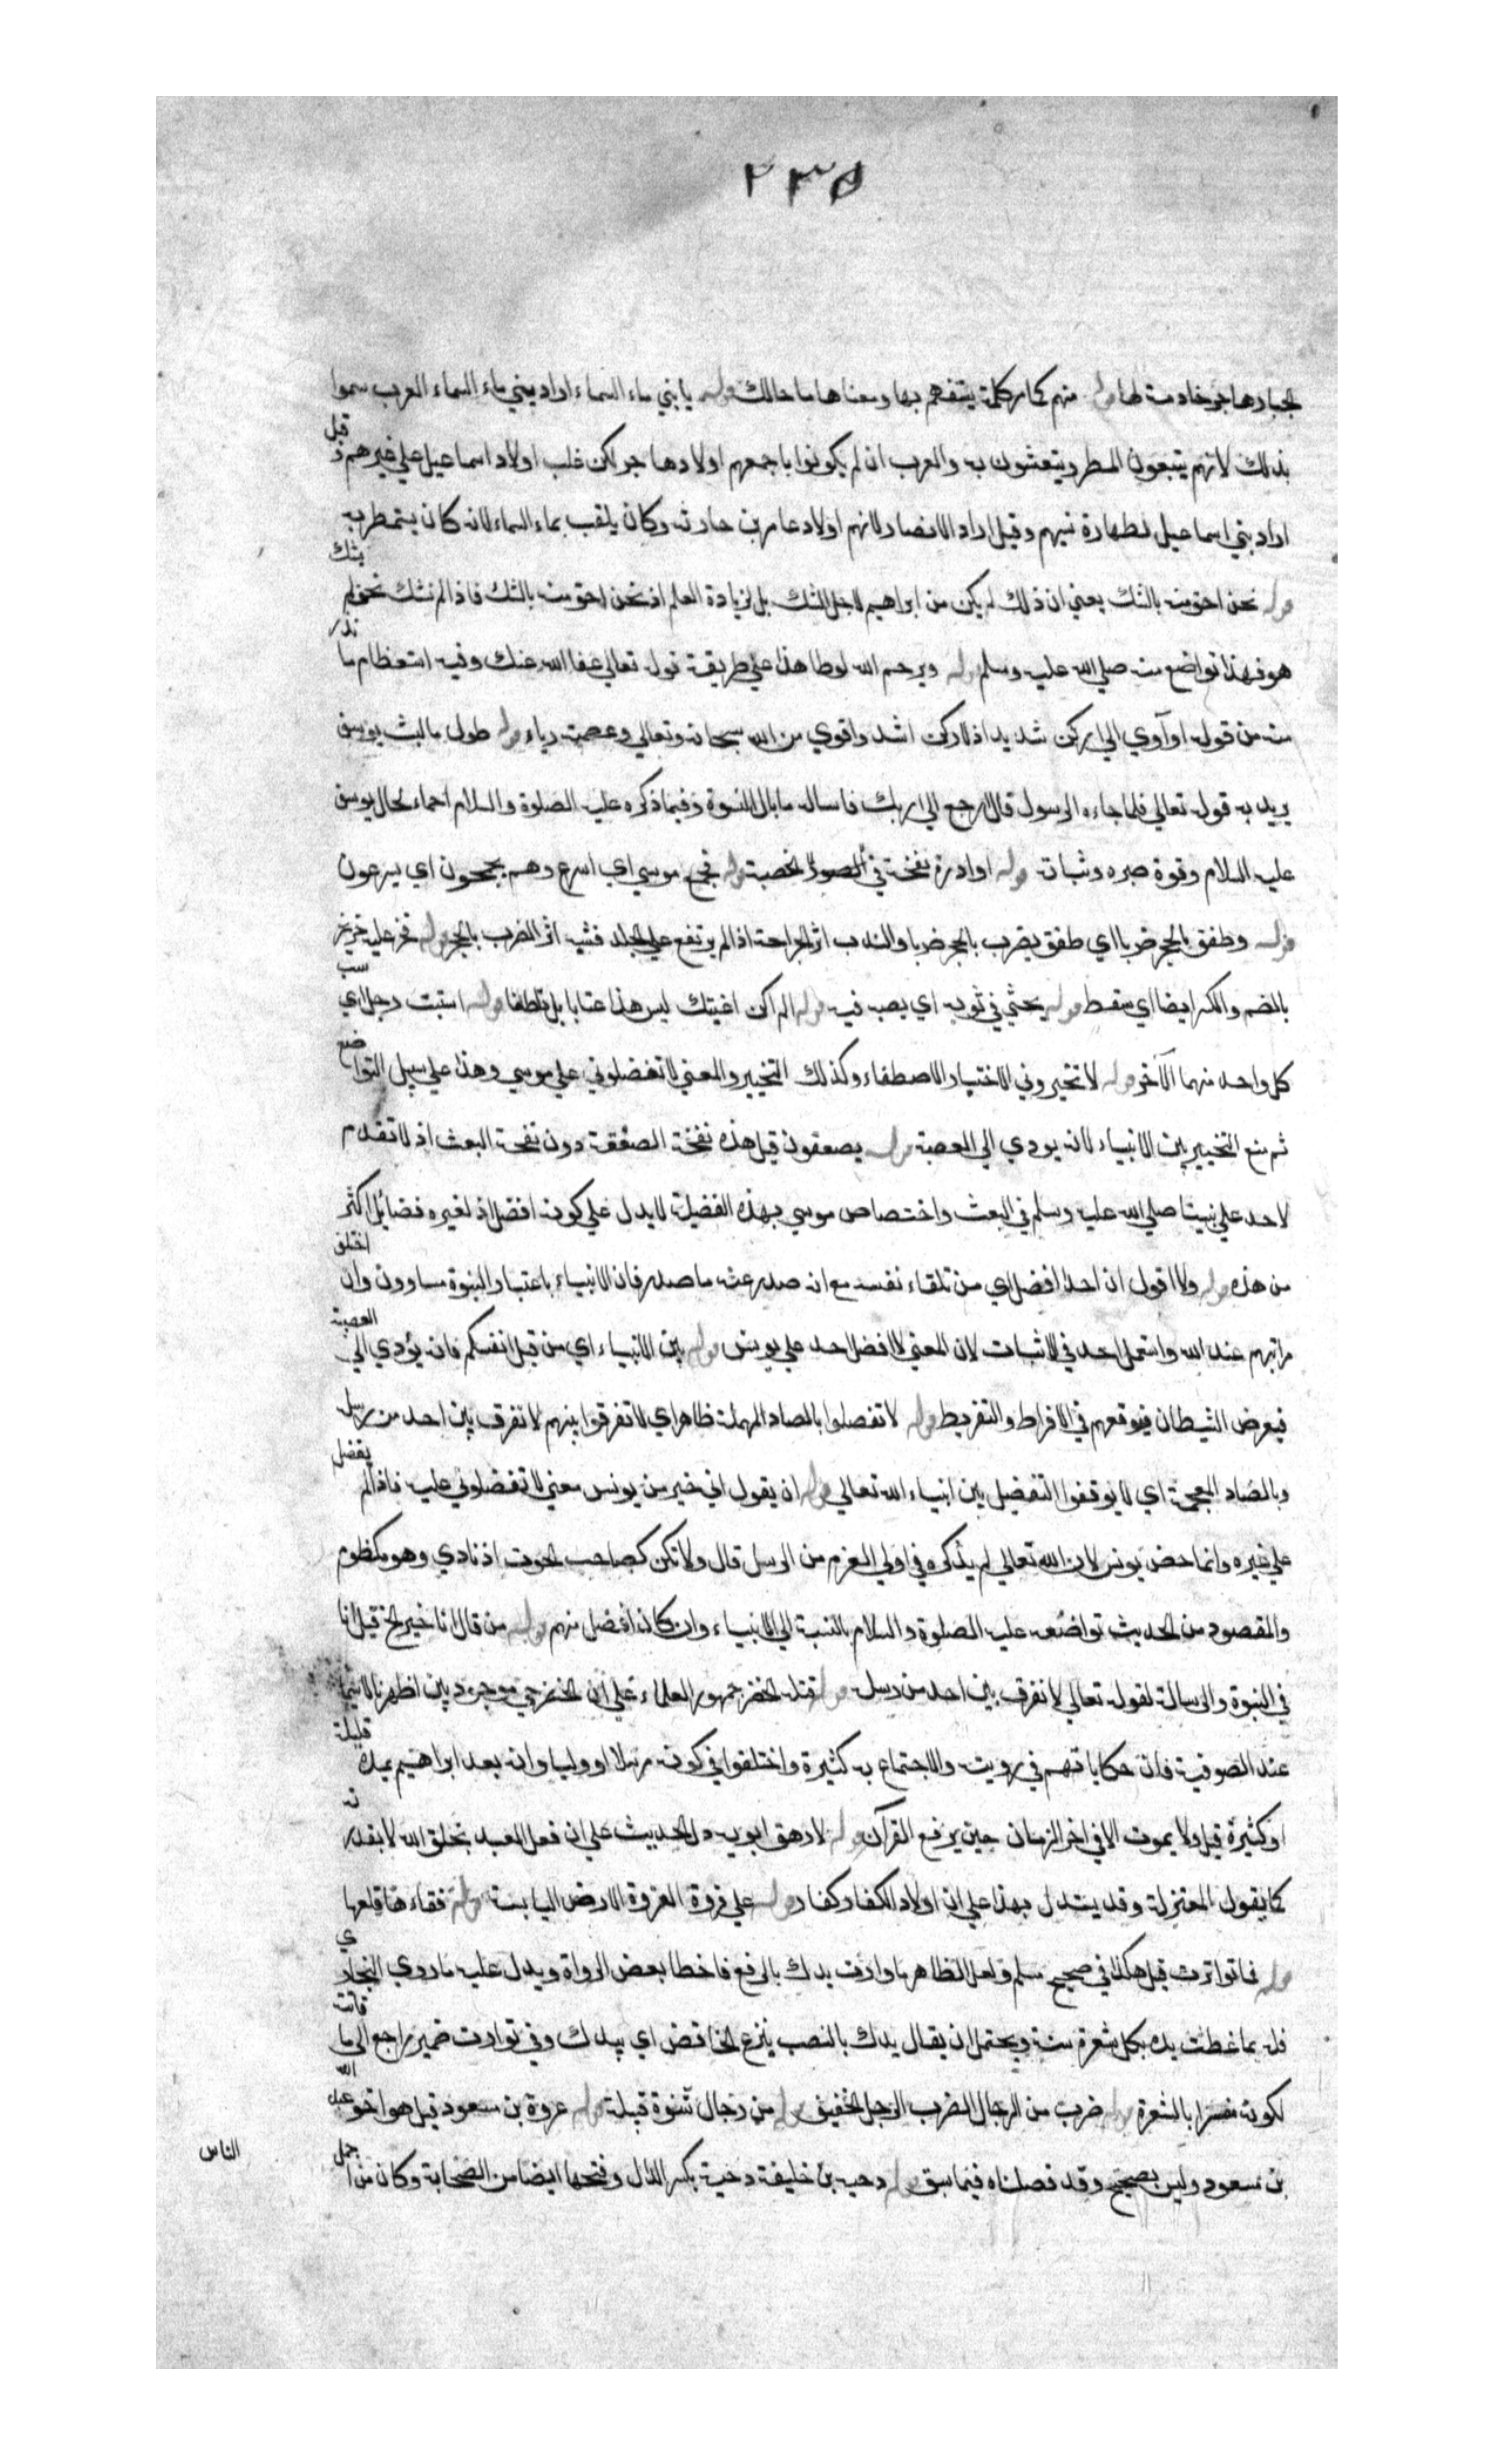 ٢٣٥
الجبار هاجر خادمة لها قوله مهيم كما مر كلمة يستفهم بها ومعناها ما حالك قوله يا بني ماء السماء اراد ببني ماء السماء العرب سموا
بذلك لانهم يتبعون المطر ويتعشون به والعرب ان لم يكونوا باجمعهم اولاد هاجر لكن غلب اولاد اسماعيل على غيرهم وقيل
اراد بني اسماعيل لطهارة نسبهم وقيل اراد الانصار لانهم اولاد عامر بن حارثة وكان يلقب بماء السماء لانه كان يستمطر به
قوله نحن احق منه بالشك يعني ان ذلك لم يكن من ابراهيم لاجل الشك بل لزيادة العلم اذ نحن احق منه بالشك فاذا لم نشك نحن لم يشك
هو فهذا تواضع منه صلي الله عليه وسلم قوله ويرحم الله لوطا هذا علي طريقة قوله تعالي عفا الله عنك وفيه استعظام ما ندر
منه من قوله او آوي الي ركن شديد اذ لا ركن اشد واقوي من الله سبحانه وتعالي وعصمته رياء قوله طول ما لبث يوسف
يريد به قوله تعالي فلما جاءه الرسول قال ارجع الي ربك فاساله ما بال النسوة وفيما ذكره عليه الصلوة والسلام احماء لحال يوسف
عليه السلام وقوة صبره وثباته قوله او ادرة نفخة في الخصية قوله فجمح موسي اي اسرع وهم يجمحون اي يسرعون
قوله وطفق بالحجر ضربا اي طفق يضرب بالحجر ضربا والندب اثر الجراحة اذا لم يرتفع علي الجلد فشبه اثر الضرب بالحجر قوله فخر عليه خر يخر
بالضم والكسر ايضا اي سقط قوله يحثي في ثوبه اي يصب فيه قوله الم اكن اغنيتك ليس هذا عتابا بل تلطفا قوله استب رجل اي سب
كل واحد منهما الآخر قوله لا تخيروني الاختيار الاصطفاء وكذلك التخيير والمعني لا تفضلوني علي موسي وهذا علي سبيل التواضع
ثم منع التخيير بين الانبياء لانه يودي الي العصبة قوله يصعقون قيل هذه نفخة الصعقة دون نفخة البعث اذ لا تقدم
لاحد علي نبينا صلي الله عليه وسلم في البعث واختصاص موسي بهذه الفضيلة لا يدل علي كونه افضل اذ لغيره فضائل اكثر
من هذه قوله ولا اقول ان احدا افضل اي من تلقاء نفسه مع انه صدر عنه ما صدر فان الانبياء باعتبار النبوة مساوون وان اختلف
مراتبهم عند الله واستعمل احد في الاثبات لان المعني لا افضل احد علي يونس قوله بين الانبياء اي من قبل انفسكم فانه يؤدي الي العصبية
فيعرض الشيطان فيوقعهم في الافراط والتفريط قوله لا تفصلوا بالصاد المهملة ظاهر اي لا تفرقوا بينهم لا نفرق بين احد من رسله
وبالضاد المعجمة اي لا توقفوا التفضيل بين انبياء الله تعالي قوله ان يقول اني خير من يونس معني لا تفضلوني عليه فاذا لم يفضل
علي غيره وانما خص يونس لان الله تعالي لم يذكره في اولي العزم من الرسل قال ولا تكن كصاحب الحوت اذ نادي وهو مكظوم
والمقصود من الحديث تواضعه عليه الصلوة والسلام بالنسبة الي الانبياء وان كان افضل منهم قوله من قال انا خير الخ قيل انا
في النبوة والرسالة لقوله تعالي لا نفرق بين احد من رسله قوله قتله الخضر جمهور العلماء علي ان الخضر حي موجود بين اظهرنا لاسيما
عند الصوفية فان حكاياتهم في رويته والاجتماع به كثيرة واختلفوا في كونه مرسلا او وليا وانه بعد ابراهيم بمدة قليلة
او كثيرة قيل ولا يموت الا في اخر الزمان حين يرفع القرآن قوله لارهق ابويه دل الحديث علي ان فعل العبد بخلق الله لا بقدرته
كما يقول المعتزلة وقد يستدل بهذا علي ان اولاد الكفار كفار قوله علي فروة الفروة الارض اليابسة قوله ففقاءها قلعها
قوله فما توارت قيل هكذا في صحيح مسلم ولعل الظاهر ما وارت يدك بالرفع فاخطا بعض الرواة ويدل عليه ما روي البخاري
فله بما غطت يده بكل شعرة سنة ويحتمل ان يقال يدك بالنصب بنزع الخافض اي بيدك وفي توارت ضمير راجع الي ما فانثه
لكونه مفسرا بالشعرة قوله ضرب من الرجال الضرب الرجل الخفيف قوله من رجال شنوة قبيلة قوله عروة بن مسعود قيل هو اخو عبد الله
بن مسعود وليس بصحيح وقد فصلناه فيما سبق قوله دحية بن خليفة دحية بكسر الدال وفتحها ايضا من الصحابة وكان من اجمل
الناس